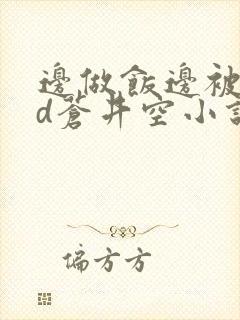 邊做飯邊被
d蒼井空小說
偏方方